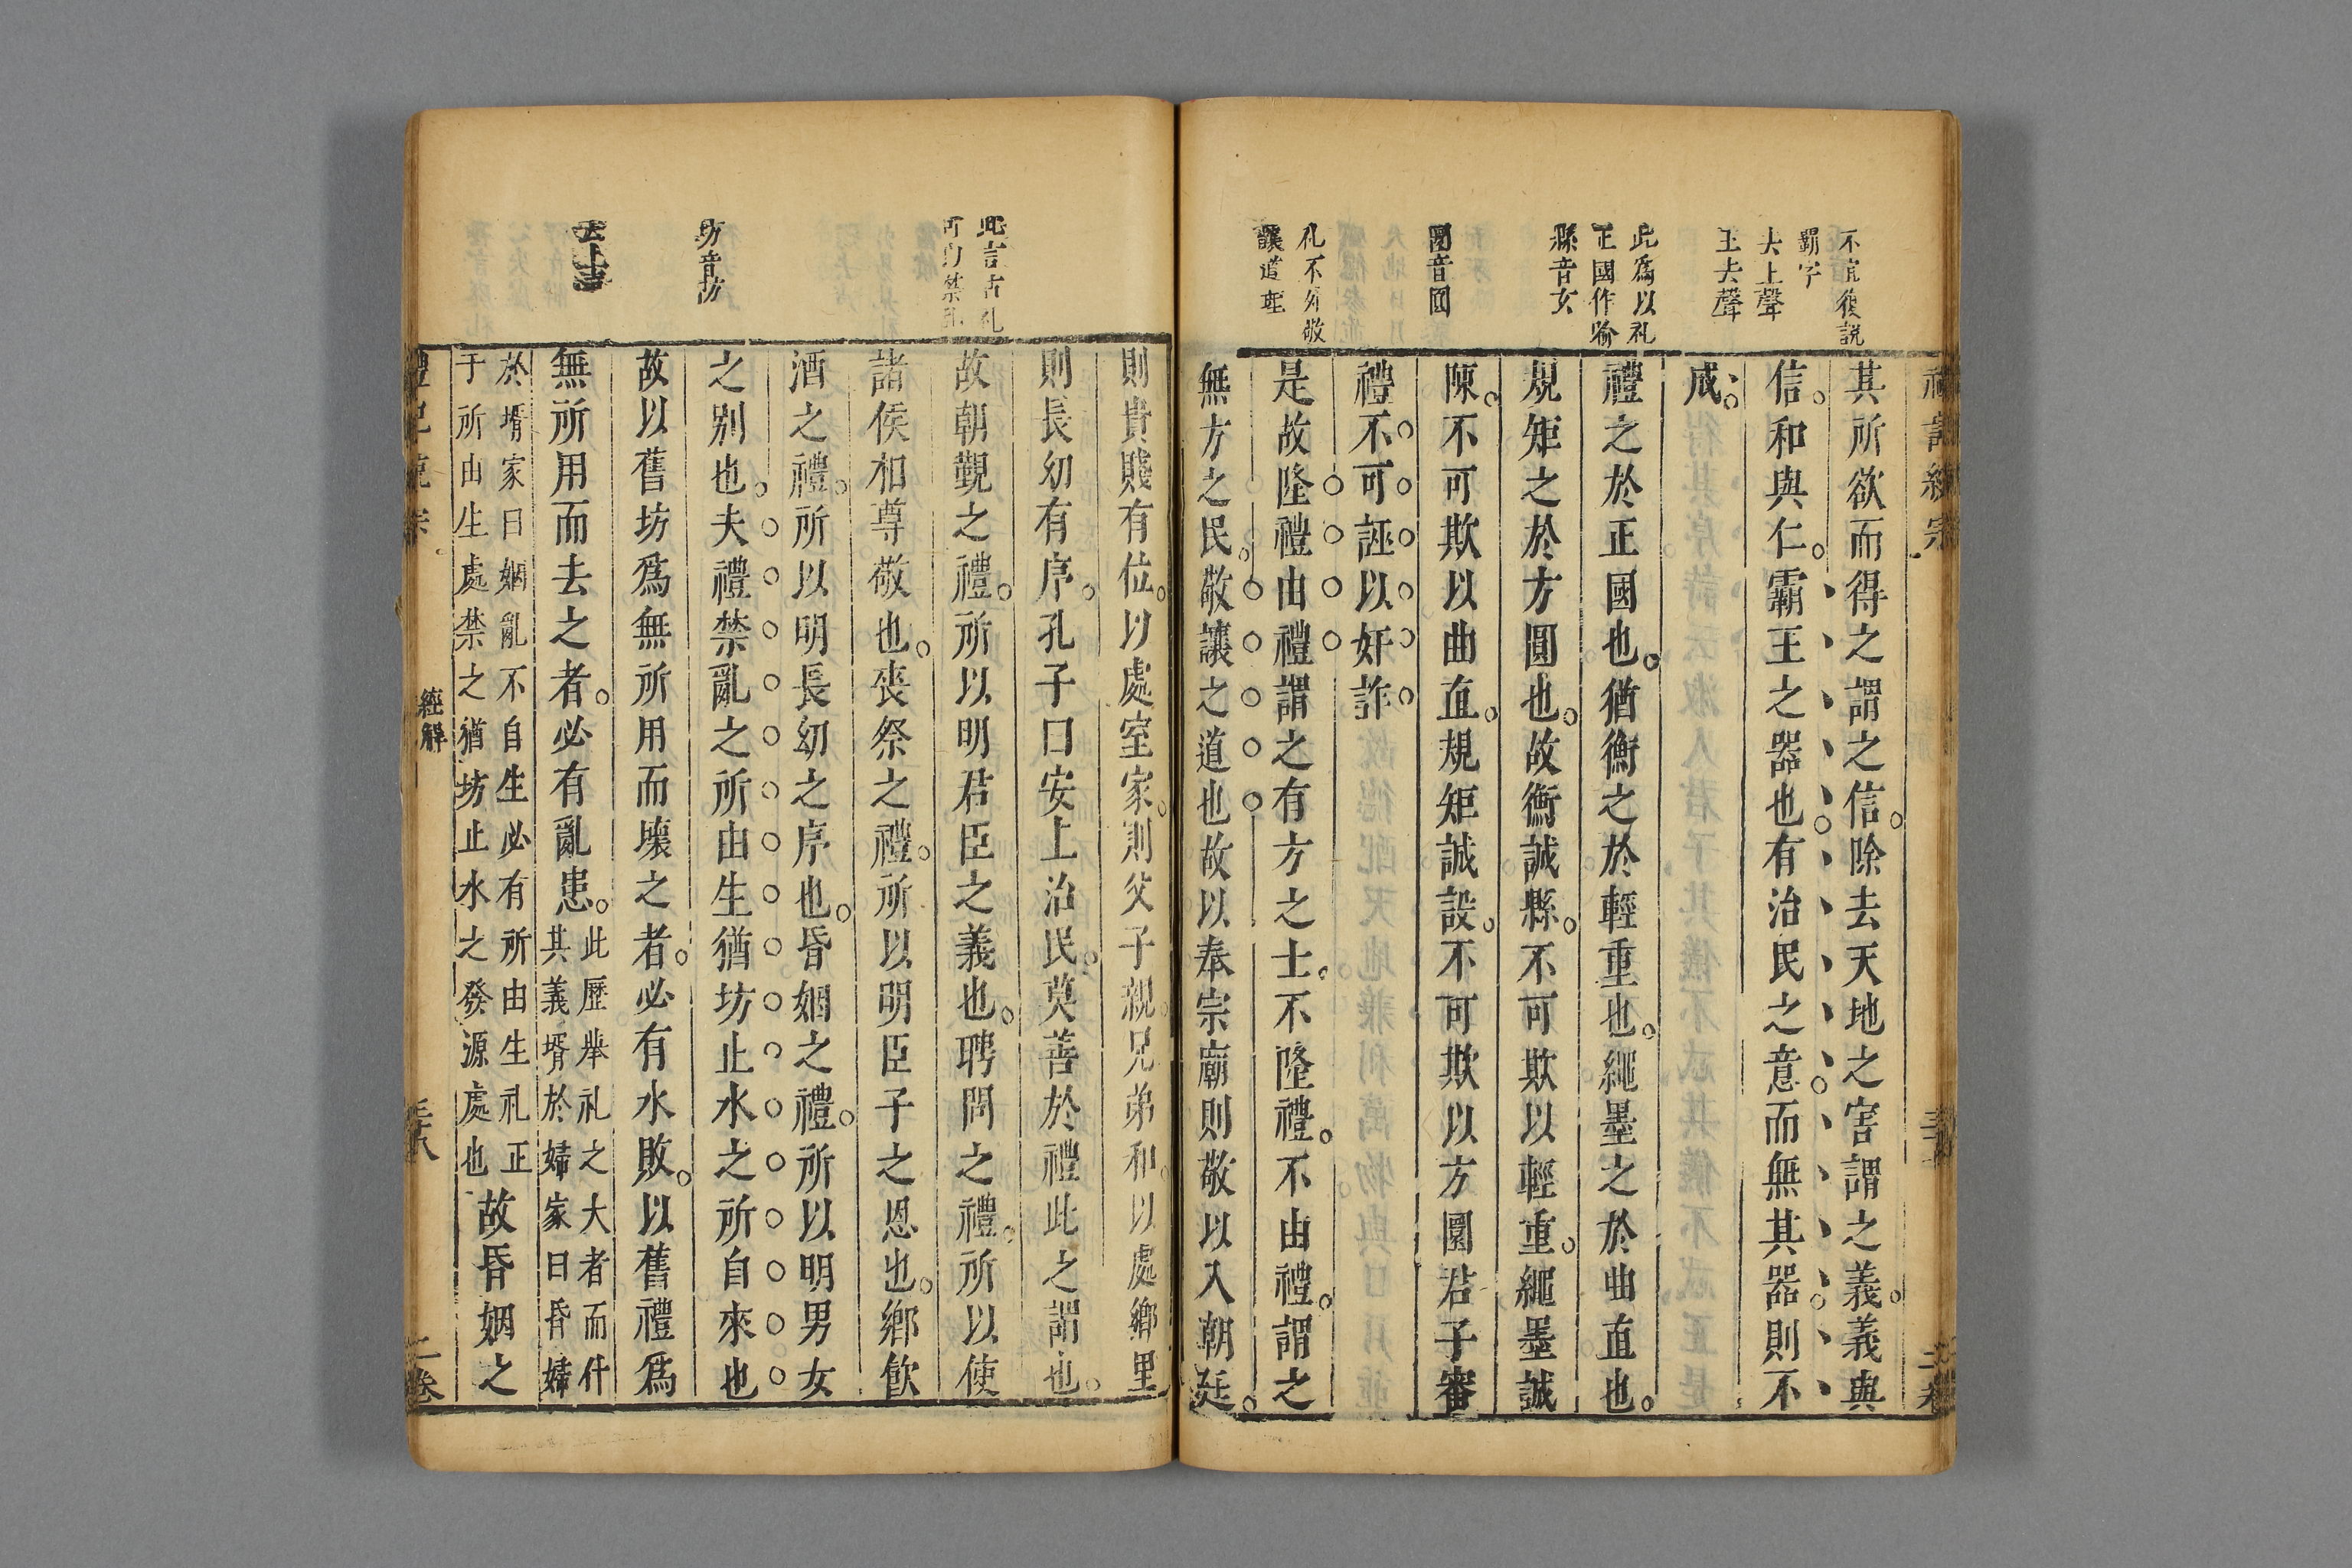 不宜復説
霸字
去上聲
王去聲
此爲以礼
正國作喻
縣音玄
圜音圓
礼不外敬
讓道理
其所欲而得之謂之信。除去天地之害謂之義。義與
信。和與仁。霸王之器也。有治民之意。而無其器。則不
成。
禮之於正國也。猶衡之於輕重也。繩墨之於曲直也。
規矩之於方圓也。故衡誠縣。不可欺以輕重。繩墨誠
陳。不可欺以曲直。規矩誠設。不可欺以方圜。君子審
禮。不可誣以奸詐
是故隆禮由禮謂之有方之士。不隆禮。不由禮。謂之
無方之民。敬讓之道也。故以奉宗廟則敬以入朝廷。
此言古礼
坊音防
則貴賤有位。以處室家。則父子親。兄弟和。以處鄉里
則長幼有序。孔子曰安上治民。莫善於禮此之謂也。
故朝覲之禮。所以明君臣之義也。聘問之禮。所以使
諸侯相尊敬也。喪祭之禮。所以明臣子之恩也。鄉飲
酒之禮。所以明長幼之序也。昏姻之禮。所以明男女
之别也。夫禮禁亂之所由生猶坊止水之所自來也
故以舊坊爲無所用而壞之者。必有水敗。以舊禮爲
無所用而去之者。必有亂患。此歷舉礼之大者而什
其義壻於婦家曰昏婦
於壻家曰姻亂不自生必有所由生礼正
于所由生處禁之猶坊止水之發源處也 故昏姻之
經解
二卷